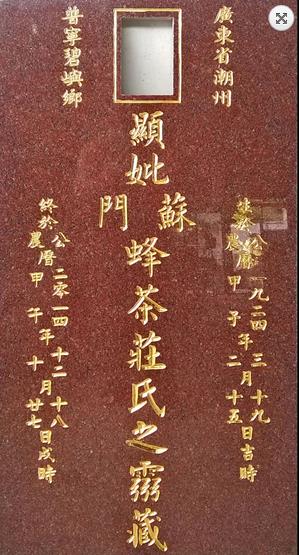 廣東省潮州
普寧碧嶼鄉
顯妣
蘇門
蜂茶莊氏之靈藏
生於 公曆 一九二四年三月十九日吉時
農曆 甲子年二月十五日吉時
終於 公曆 二零一四年十二月十八日戌時
農曆 甲午年十月廿七日戌時